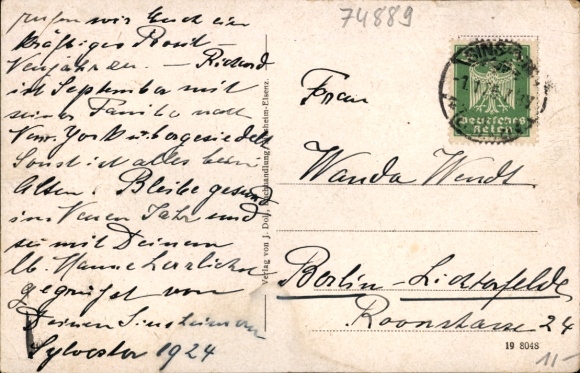 rufen wir Euch ein
kräftiges Prosit
Neujahr zu. — Richard
ist September mit
seiner Familie nach
New York übergesiedelt
Sonst ist alles beim
Alten. Bleibe gesund
im Neuen Jahr und
sei mit Deinem
lb. Manne herzlichst
gegrüsst von
Deinen Sinsheimern
Sylvester 1924
74889
SINSHEIM
Deutsches
Reich
Frau
Wanda Wendt
Berlin-Lichterfelde
Roonstrasse 24
Verlag von J. Doll, Buchhandlung, Sinsheim-Elsenz.
19 8048
11-